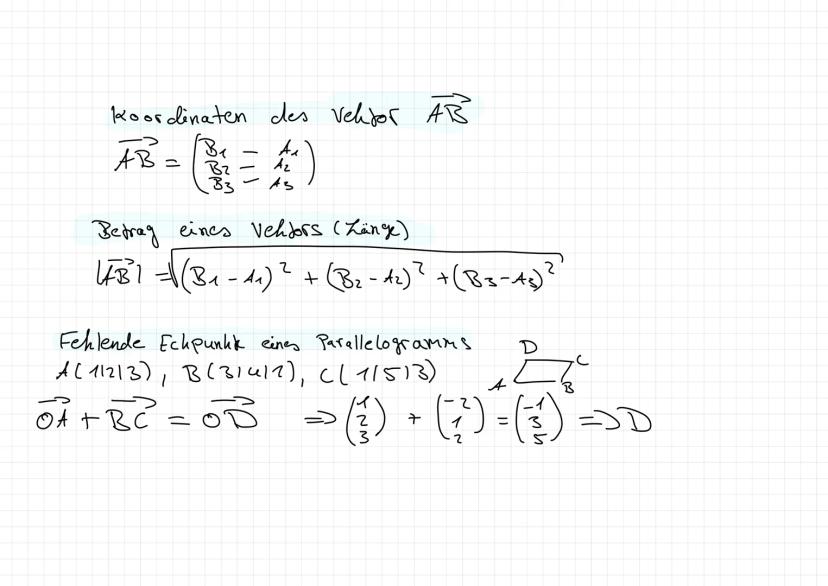 Koordinaten des Vektor \overrightarrow{AB}
\overrightarrow{AB} = \begin{pmatrix} B_1 - A_1 \\ B_2 - A_2 \\ B_3 - A_3 \end{pmatrix}
Betrag eines Vektors (Länge)
|\overrightarrow{AB}| = \sqrt{(B_1 - A_1)^2 + (B_2 - A_2)^2 + (B_3 - A_3)^2}
Fehlende Eckpunkte eines Parallelogramms
D
A(1|2|3), B(3|4|1), C(1|5|3) C
A B
\overrightarrow{OA} + \overrightarrow{BC} = \overrightarrow{OD} ⇒ \begin{pmatrix} 1 \\ 2 \\ 3 \end{pmatrix} + \begin{pmatrix} -2 \\ 1 \\ 2 \end{pmatrix} = \begin{pmatrix} -1 \\ 3 \\ 5 \end{pmatrix} ⇒ D